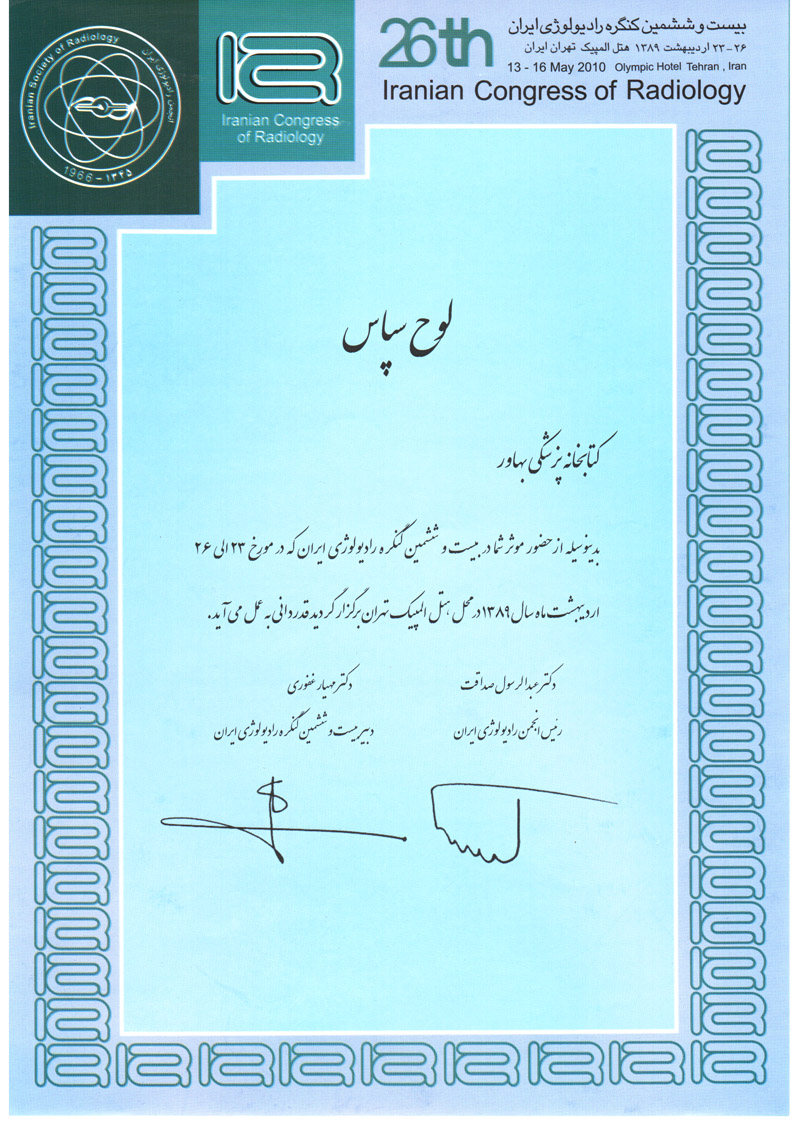 Iranian Society of Radiology
انجمن رادیولوژی ایران
1966 - ۱۳۴۵
Iranian Congress
of Radiology
26th
بیست و ششمین کنگره رادیولوژی ایران
۲۳-۲۶ اردیبهشت ۱۳۸۹ هتل المپیک تهران ایران
13 - 16 May 2010 Olympic Hotel Tehran , Iran
Iranian Congress of Radiology
لوح سپاس
کتابخانه پزشکی بهاور
بدینوسیله از حضور موثر شما در بیست و ششمین کنگره رادیولوژی ایران که در مورخ ۲۳ الی ۲۶
اردیبهشت ماه سال ۱۳۸۹ در محل هتل المپیک تهران برگزار گردید قدردانی به عمل می آید.
دکتر عبدالرسول صداقت
رئیس انجمن رادیولوژی ایران
دکتر مهیار غفوری
دبیر بیست و ششمین کنگره رادیولوژی ایران